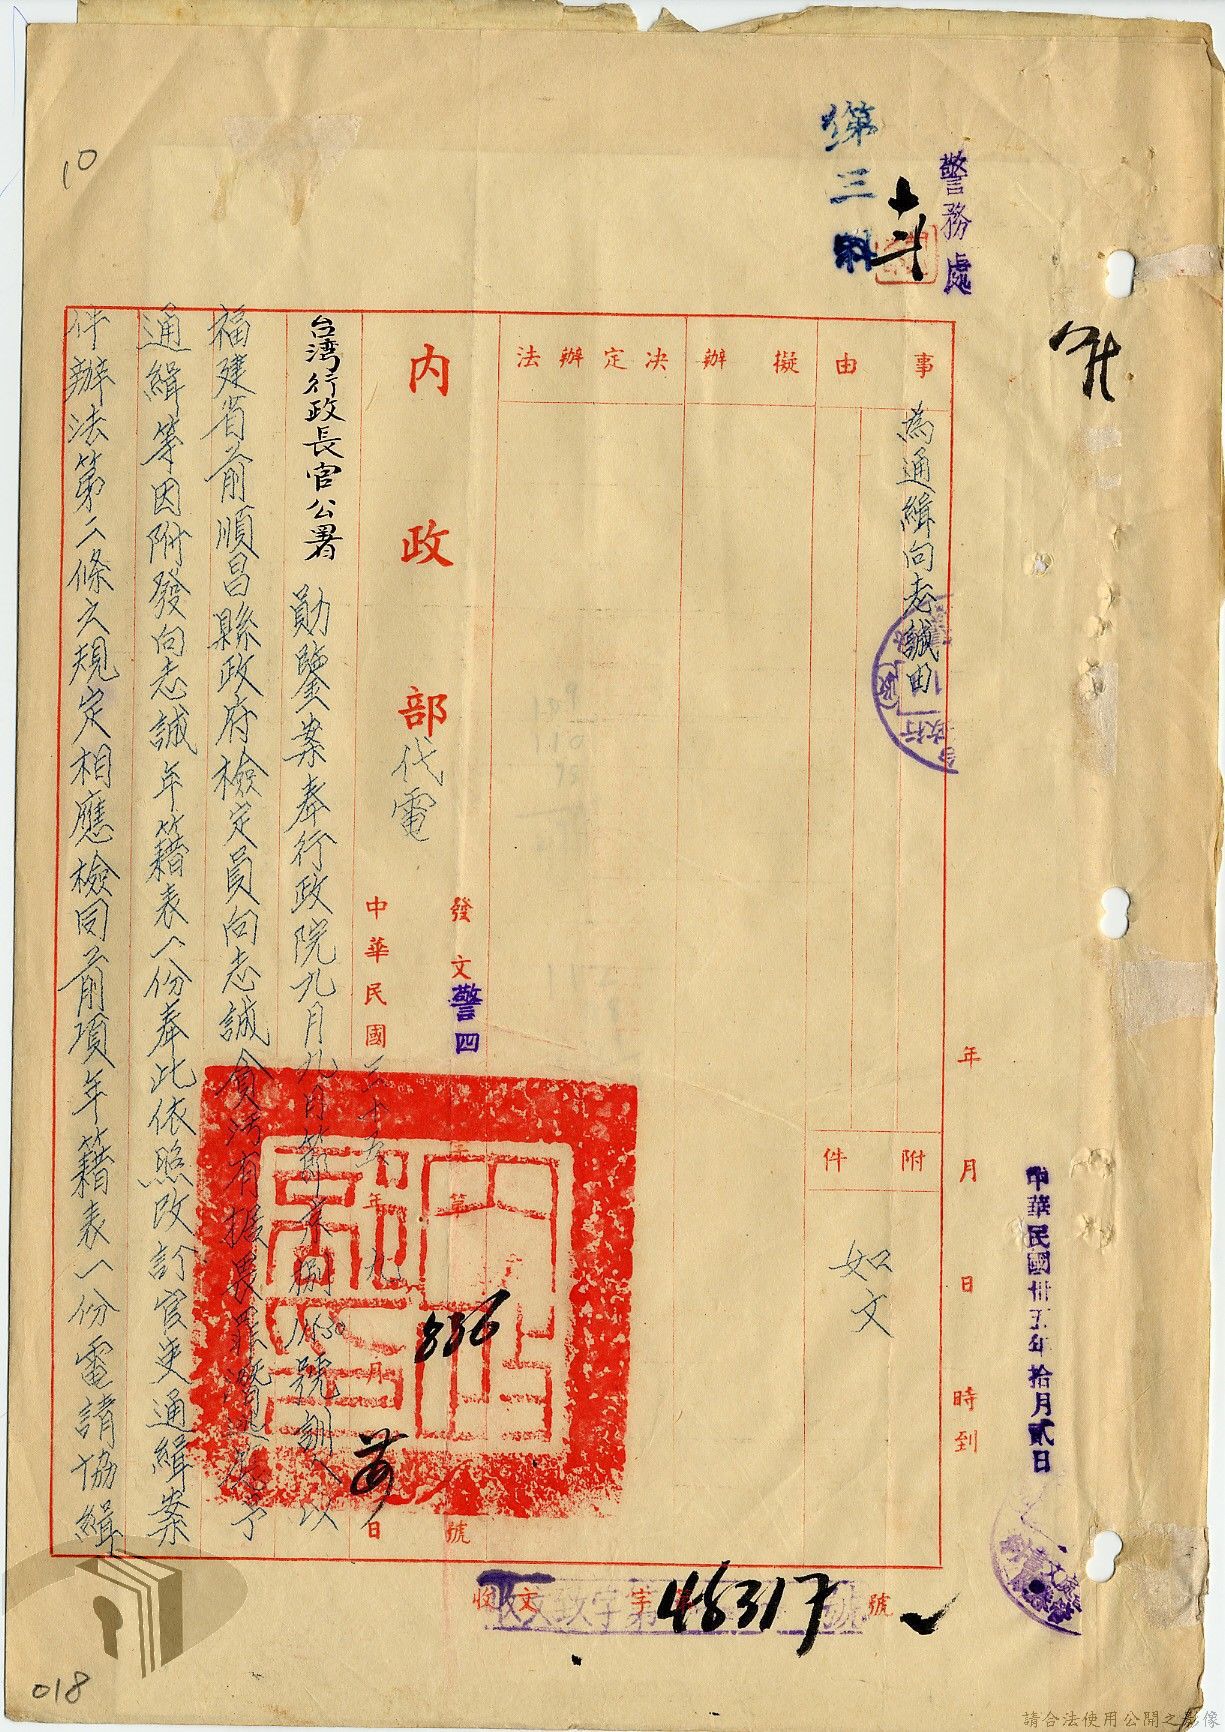 警務處
第三科
10
事由
為通緝向志誠由
附件
如文
擬辦
決定辦法
年月日時到
中華民國卅五年拾月貳日
內政部代電
發文警四字第836號
中華民國三十五年九月日
台灣行政長官公署勛鑒案奉行政院九月九日節京捌11550號訓令以
福建省前順昌縣政府檢定員向志誠貪污有據畏罪潛逃應予
通緝等因附發向志誠年籍表一份奉此依照改訂官吏通緝案
件辦法第二條之規定相應檢同前項年籍表一份電請協緝
收文字第46317號
收文致字第號
018
請合法使用公開之影像